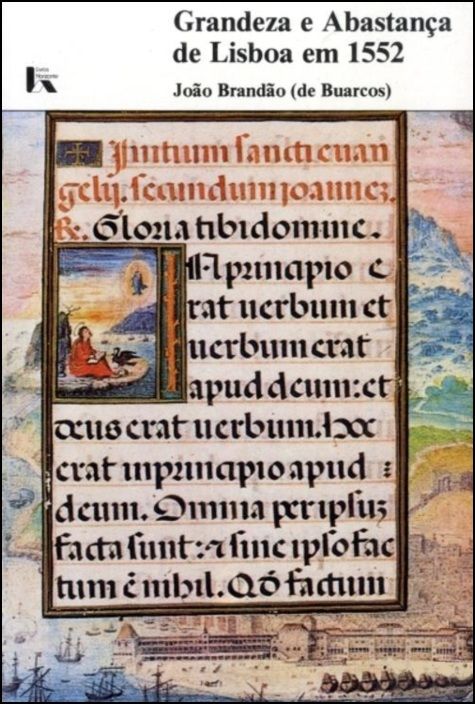 Grandeza e Abastança
de Lisboa em 1552
João Brandão (de Buarcos)
Livros
Horizonte
Initium sancti euan
gelij. secundum ioannez.
R. Gloria tibi domine.
IN principio e
rat uerbum et
uerbum erat
apud deum: et
deus erat uerbum. hoc
erat in principio apud
deum. Omnia per ipsuz
facta sunt: ⁊ sine ipso fac
tum ē nihil. Qđ factum